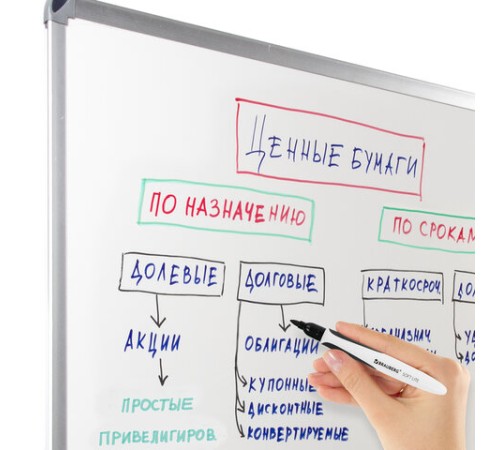 ЦЕННЫЕ БУМАГИ
ПО НАЗНАЧЕНИЮ
ПО СРОКАМ
ДОЛЕВЫЕ
ДОЛГОВЫЕ
КРАТКОСРОЧ.
АКЦИИ
ОБЛИГАЦИИ
ПРОСТЫЕ
ПРИВЕЛИГИРОВ.
КУПОННЫЕ
ДИСКОНТНЫЕ
КОНВЕРТИРУЕМЫЕ
BRAUBERG